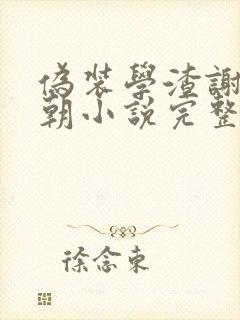 偽裝學渣謝
朝小說完整
徐念東